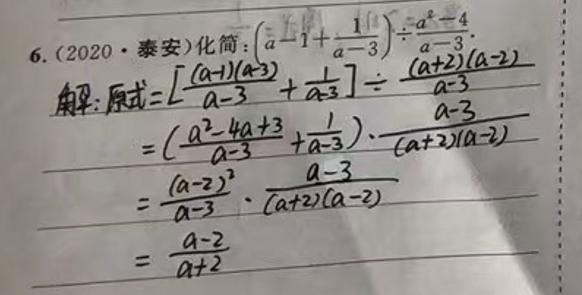 6. (2020·泰安)化简:(a-1+1/(a-3))÷(a²-4)/(a-3).
解:原式=[(a-1)(a-3)/(a-3)+1/(a-3)]÷(a+2)(a-2)/(a-3)
=((a²-4a+3)/(a-3)+1/(a-3))·(a-3)/((a+2)(a-2))
=(a-2)²/(a-3)·(a-3)/((a+2)(a-2))
=(a-2)/(a+2)